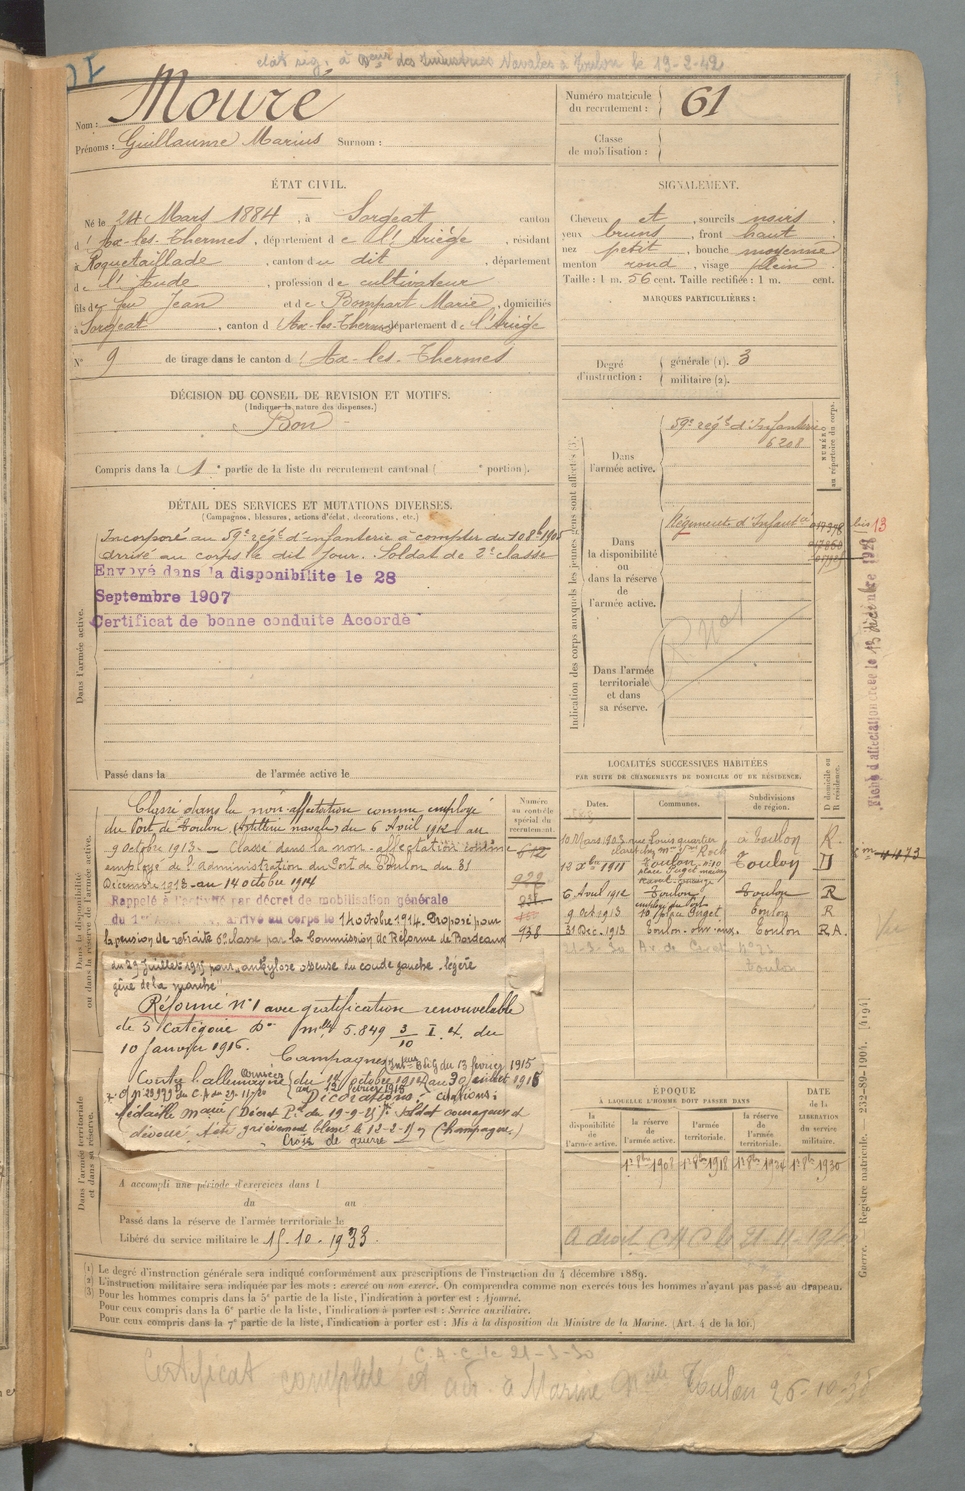 état sig. à des Industries Navales à Toulon le 19-2-42
Nom : Moure
Prénoms : Guillaume Marius Surnom :
Numéro matricule du recrutement : 61
Classe de mobilisation :
ÉTAT CIVIL.
Né le 24 Mars 1884, à Sorgeat canton
d' Ax-les-Thermes, département de l'Ariège, résidant
à Roquetaillade, canton du dit, département
de l'Aude, profession de cultivateur
fils de feu Jean et de Bompart Marie, domiciliés
à Sorgeat, canton d' Ax-les-Thermes, département de l'Ariège
N° 9 de tirage dans le canton d' Ax-les-Thermes
SIGNALEMENT.
Cheveux et, sourcils noirs
yeux bruns, front haut
nez petit, bouche moyenne
menton rond, visage plein
Taille : 1 m. 56 cent. Taille rectifiée : 1 m. cent.
MARQUES PARTICULIÈRES :
Degré d'instruction : générale (1). 3
militaire (2).
DÉCISION DU CONSEIL DE REVISION ET MOTIFS.
(Indiquer la nature des dispenses.)
Bon
Compris dans la 1e partie de la liste du recrutement cantonal ( e portion).
DÉTAIL DES SERVICES ET MUTATIONS DIVERSES.
(Campagnes, blessures, actions d'éclat, décorations, etc.)
Dans l'armée active.
Incorporé au 59e régt d'infanterie à compter du 8bre 1905
arrivé au corps le dit jour. Soldat de 2e classe
Envoyé dans la disponibilité le 28
Septembre 1907
Certificat de bonne conduite Accordé
Passé dans la de l'armée active le
Indication des corps auxquels les jeunes gens sont affectés
Dans l'armée active.
59e régt d'Infanterie
6208
NUMÉRO au répertoire du corps.
Dans la disponibilité ou dans la réserve de l'armée active.
Régiment d'Infantie
bis 13
Dans l'armée territoriale et dans sa réserve.
R Nat
Fiche d'affectation créée le 13 décembre 1928
Dans la disponibilité ou dans la réserve de l'armée active.
Classé dans la non-affectation comme employé
du Port de Toulon (Artillerie navale) du 6 Avril 1912 au
9 octobre 1913. — Classé dans la non-affectation comme
employé de l'administration du Port de Toulon du 31
Décembre 1913 au 14 octobre 1914
Rappelé à l'activité par décret de mobilisation générale
du 1er arrivé au corps le 14 octobre 1914. Proposé pour
la pension de retraite 6e classe par la Commission de Réforme de Bordeaux
du 29 juillet 1915 pour "ankylose osseuse du coude gauche. légère
gêne de la marche"
Réformé n°1 avec gratification renouvelable
de 5e catégorie 5.849 3/10 I. du
10 Janvier 1916.
Campagnes
Contre l'allemagne
Intérieur du 13 février 1915
au 30 juillet 1915
Armées du 14 octobre 1914
au 12 février 1915
Décorations, citations :
Médaille Mre (Décret Pt du 19-9-21) Soldat courageux et
dévoué. A été grièvement blessé le 12-2-15 (Champagne)
Croix de guerre
Numéro au contrôle spécial du recrutement.
612
922
938
LOCALITÉS SUCCESSIVES HABITÉES
PAR SUITE DE CHANGEMENTS DE DOMICILE OU DE RÉSIDENCE.
Dates. Communes. Subdivisions de région. D domicile ou R résidence.
10 Mars 1903 rue Louis quartier à Toulon R.
12 Xbre 1911 Toulon, n°10 place Puget Toulon D
6 Avril 1912 Toulon employé du Port Toulon R
9 Oct 1913 10 place Puget Toulon R
31 Dec. 1913 Toulon Toulon RA.
21-3-30 Av de n° 73 Toulon
ÉPOQUE
À LAQUELLE L'HOMME DOIT PASSER DANS
la disponibilité de l'armée active.
la réserve de l'armée active.
l'armée territoriale.
la réserve de l'armée territoriale.
DATE de la LIBÉRATION du service militaire.
1er 8bre 1908 1er 8bre 1918 1er 8bre 1924 1er 8bre 1930
Dans l'armée territoriale et dans sa réserve.
A accompli une période d'exercices dans l
du au
Passé dans la réserve de l'armée territoriale le
Libéré du service militaire le 15-10-1933.
A droit C A C le 21-11-19
Guerre. — Registre matricule. — 232-89-1904. [4194]
(1) Le degré d'instruction générale sera indiqué conformément aux prescriptions de l'instruction du 4 décembre 1889.
(2) L'instruction militaire sera indiquée par les mots : exercé ou non exercé. On comprendra comme non exercés tous les hommes n'ayant pas passé au drapeau.
(3) Pour les hommes compris dans la 5e partie de la liste, l'indication à porter est : Ajourné.
Pour ceux compris dans la 6e partie de la liste, l'indication à porter est : Service auxiliaire.
Pour ceux compris dans la 7e partie de la liste, l'indication à porter est : Mis à la disposition du Ministre de la Marine. (Art. 4 de la loi.)
C-A-C le 21-3-30
Certificat complété et adr. à Marine Nale Toulon 26-10-38